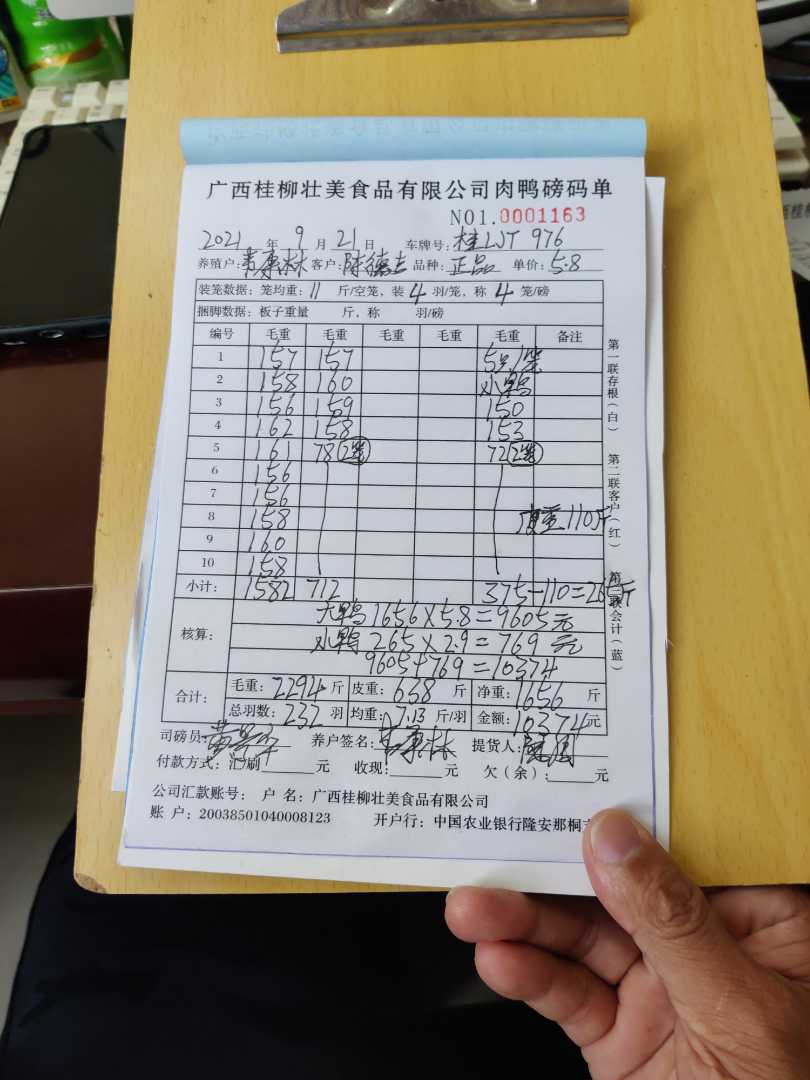 广西桂柳壮美食品有限公司肉鸭磅码单
NO1.0001163
2021 年 9 月 21 日 车牌号: 桂LJT 976
养殖户: 韦康林 客户: 陈德 品种: 正品 单价: 5.8
装笼数据: 笼均重: 11 斤/空笼, 装 4 羽/笼, 称 4 笼/磅
捆脚数据: 板子重量 斤, 称 羽/磅
编号 毛重 毛重 毛重 毛重 毛重 备注
1 157 157 5只/笼
2 158 160 小鸭
3 156 159 150
4 162 158 153
5 161 78 2笼 72 2笼
6 156
7 156
8 158 皮重110斤
9 160
10 158
小计: 1582 712 375-110=265斤
核算: 大鸭 1656×5.8=9605元
小鸭 265×2.9=769元
9605+769=10374
合计: 毛重: 2294 斤 皮重: 638 斤 净重: 1656 斤
总羽数: 232 羽 均重: 7.13 斤/羽 金额: 10374元
司磅员: 黄 养户签名: 韦康林 提货人:
付款方式: 汇刷 元 收现: 元 欠(余): 元
公司汇款账号: 户 名: 广西桂柳壮美食品有限公司
账 户: 20038501040008123 开户行: 中国农业银行隆安那桐
第一联存根(白) 第二联客户(红) 第三联会计(蓝)